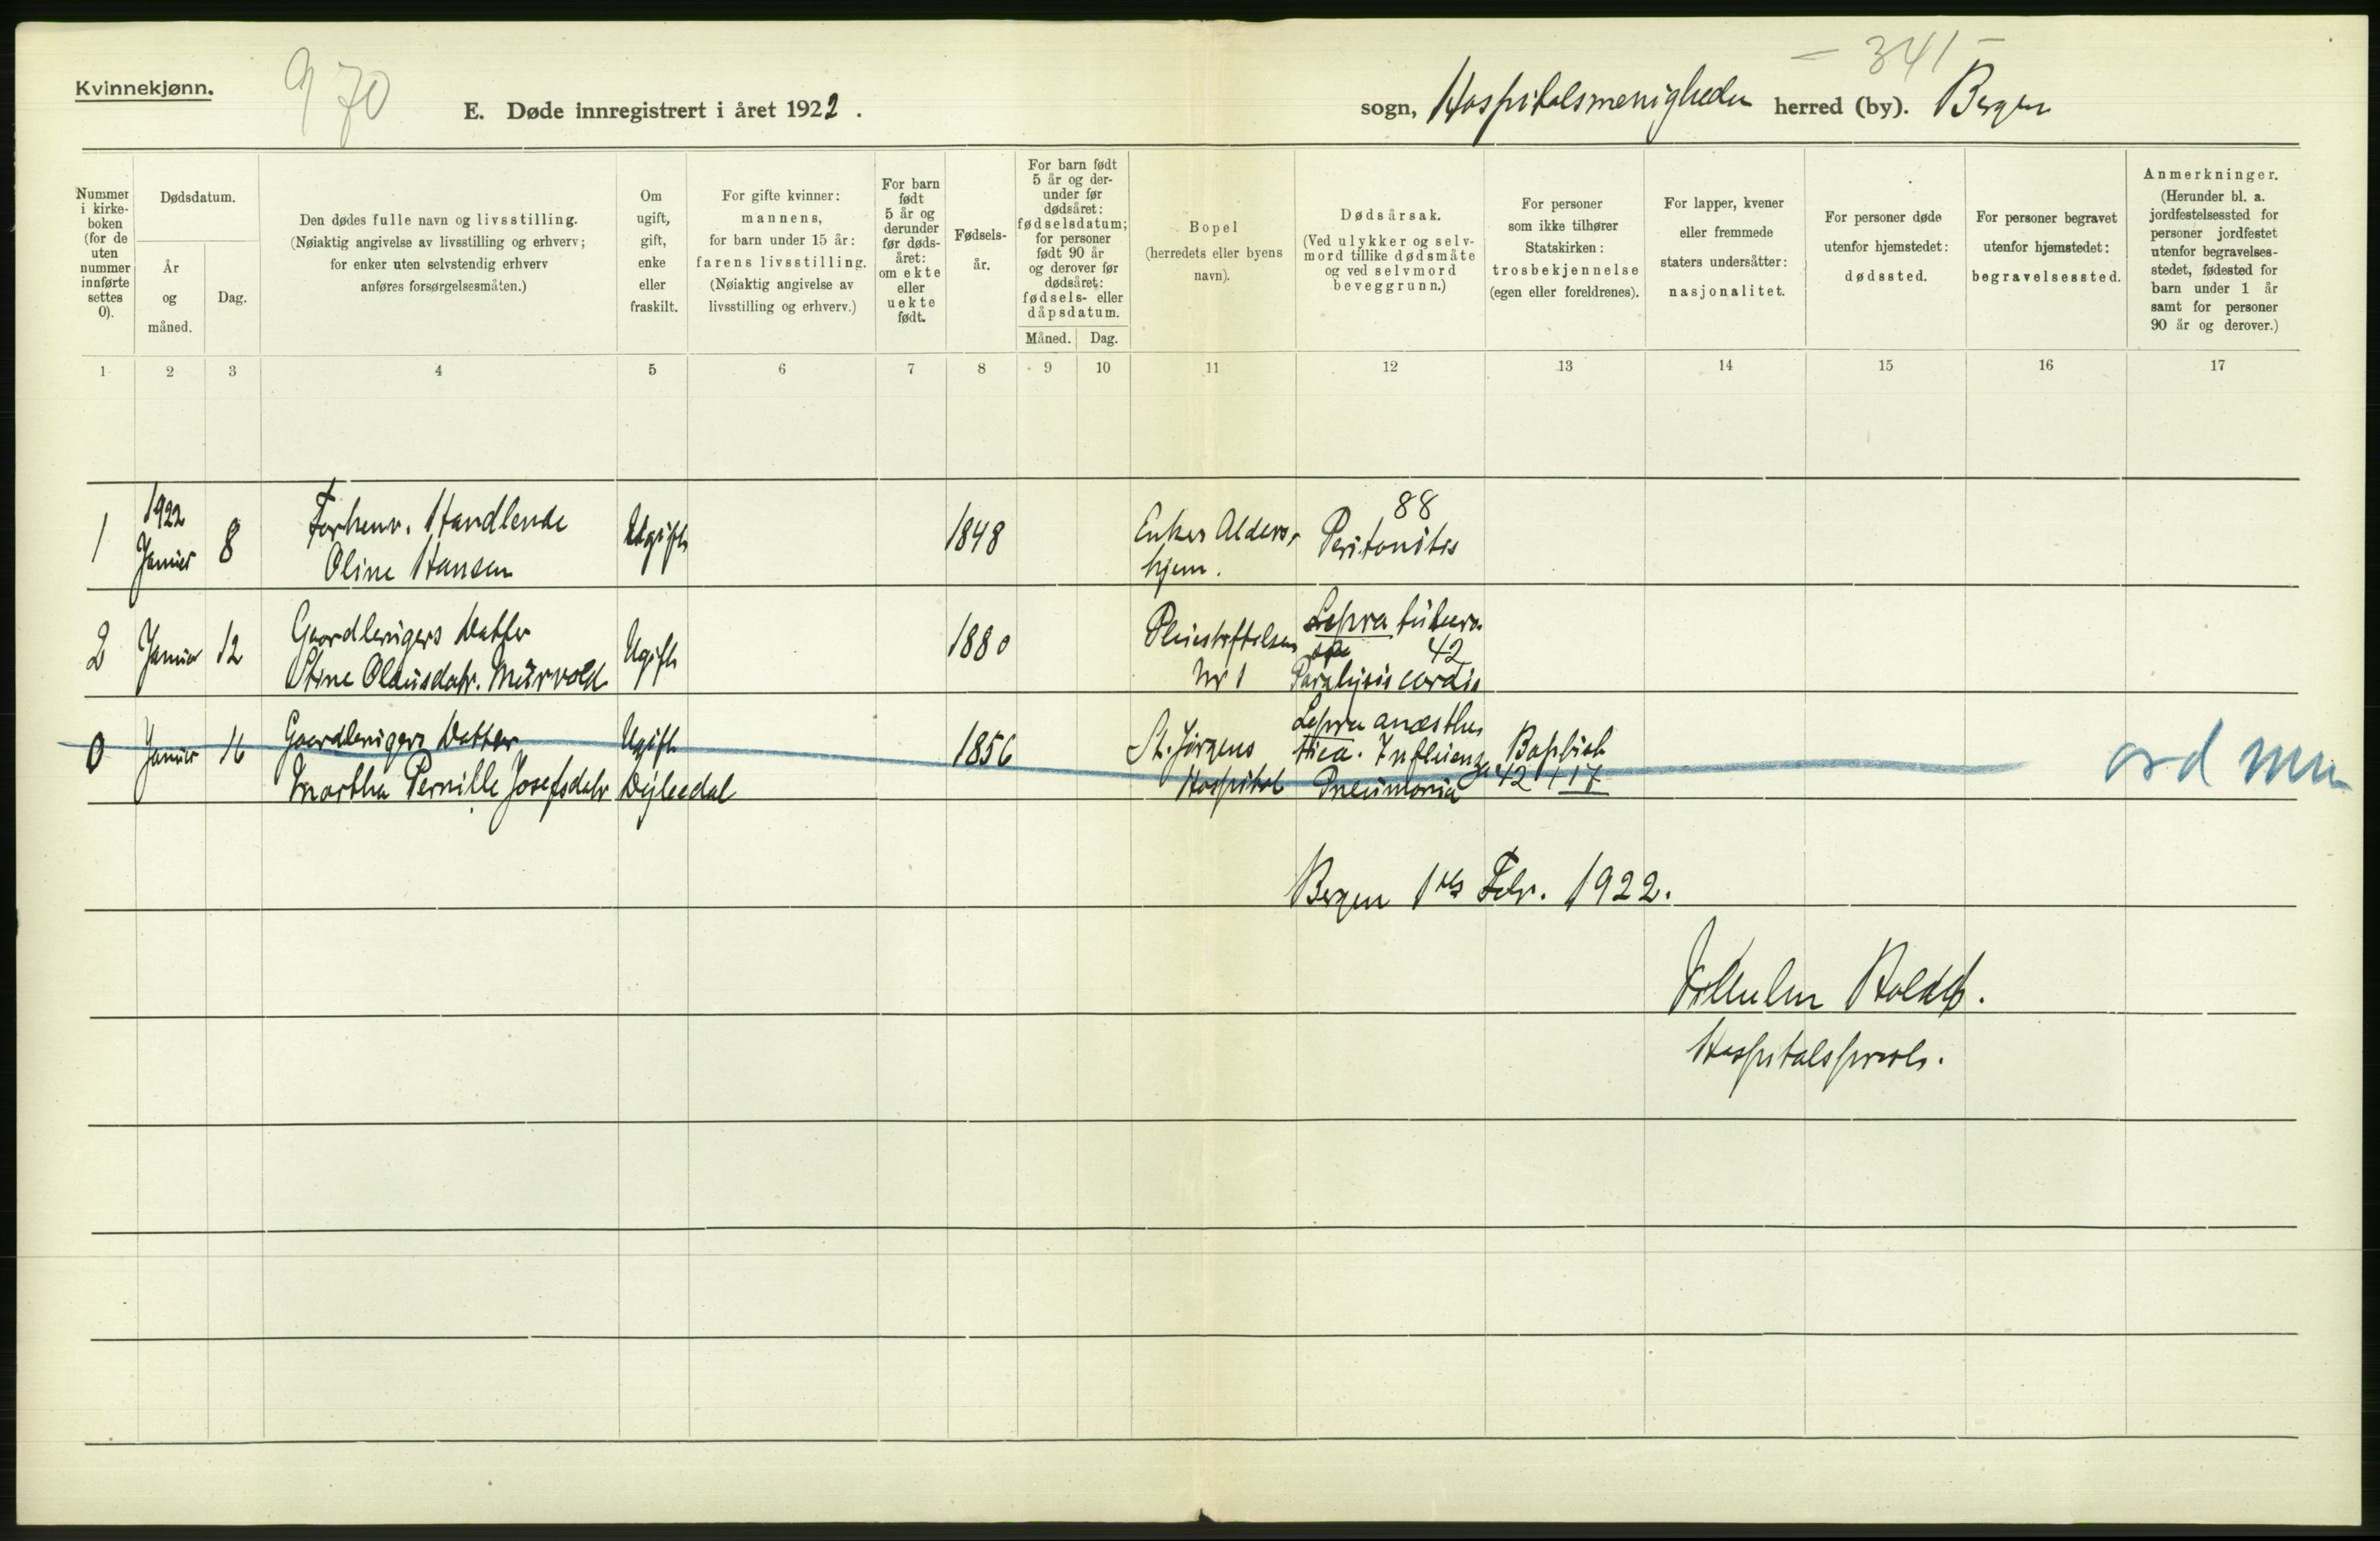 Kvinnekjønn.
970
- 341 -
E. Døde innregistrert i året 1922.
sogn, Hospitalsmenigheden herred (by). Bergen
Nummer i kirke-boken (for de uten nummer innførte settes 0).
Dødsdatum.
År og måned.
Dag.
Den dødes fulle navn og livsstilling.
(Nøiaktig angivelse av livsstilling og erhverv;
for enker uten selvstendig erhverv
anføres forsørgelsesmåten.)
Om
ugift,
gift,
enke
eller
fraskilt.
For gifte kvinner:
mannens,
for barn under 15 år:
farens livsstilling.
(Nøiaktig angivelse av
livsstilling og erhverv.)
For barn
født
5 år og
derunder
før døds-
året:
om ekte
eller
uekte
født.
Fødsels-
år.
For barn født
5 år og der-
under før
dødsåret:
fødselsdatum;
for personer
født 90 år
og derover før
dødsåret:
fødsels- eller
dåpsdatum.
Måned. Dag.
Bopel
(herredets eller byens
navn).
Dødsårsak.
(Ved ulykker og selv-
mord tillike dødsmåte
og ved selvmord
beveggrunn.)
For personer
som ikke tilhører
Statskirken:
trosbekjennelse
(egen eller foreldrenes).
For lapper, kvener
eller fremmede
staters undersåtter:
nasjonalitet.
For personer døde
utenfor hjemstedet:
dødssted.
For personer begravet
utenfor hjemstedet:
begravelsessted.
Anmerkninger.
(Herunder bl. a.
jordfestelsessted for
personer jordfestet
utenfor begravelses-
stedet, fødested for
barn under 1 år
samt for personer
90 år og derover.)
1 2 3 4 5 6 7 8 9 10 11 12 13 14 15 16 17
1 1922 Januer 8 Forhenv. Handlende Ugift 1848 Enkes Alders- 88
Oline Hansen hjem. Peritonitis
2 Januar 12 Gaardbrugers Datter Ugift 1880 Pleiestiftelsen Lepra tubero.
Stine Olausdatr. Murvold Nr 1 42
Paralysis cordis
0 Januar 16 Gaardbrugers Datter Ugift 1856 St. Jørgens Lepra anæsthe
Martha Pernille Josefsdatr Dejleedal Hospital ttica. Influenza Baptist
Pneumonia 42 + 17
ord
Bergen 1ste Febr. 1922.
Vilhelm
Hospitalsprest.